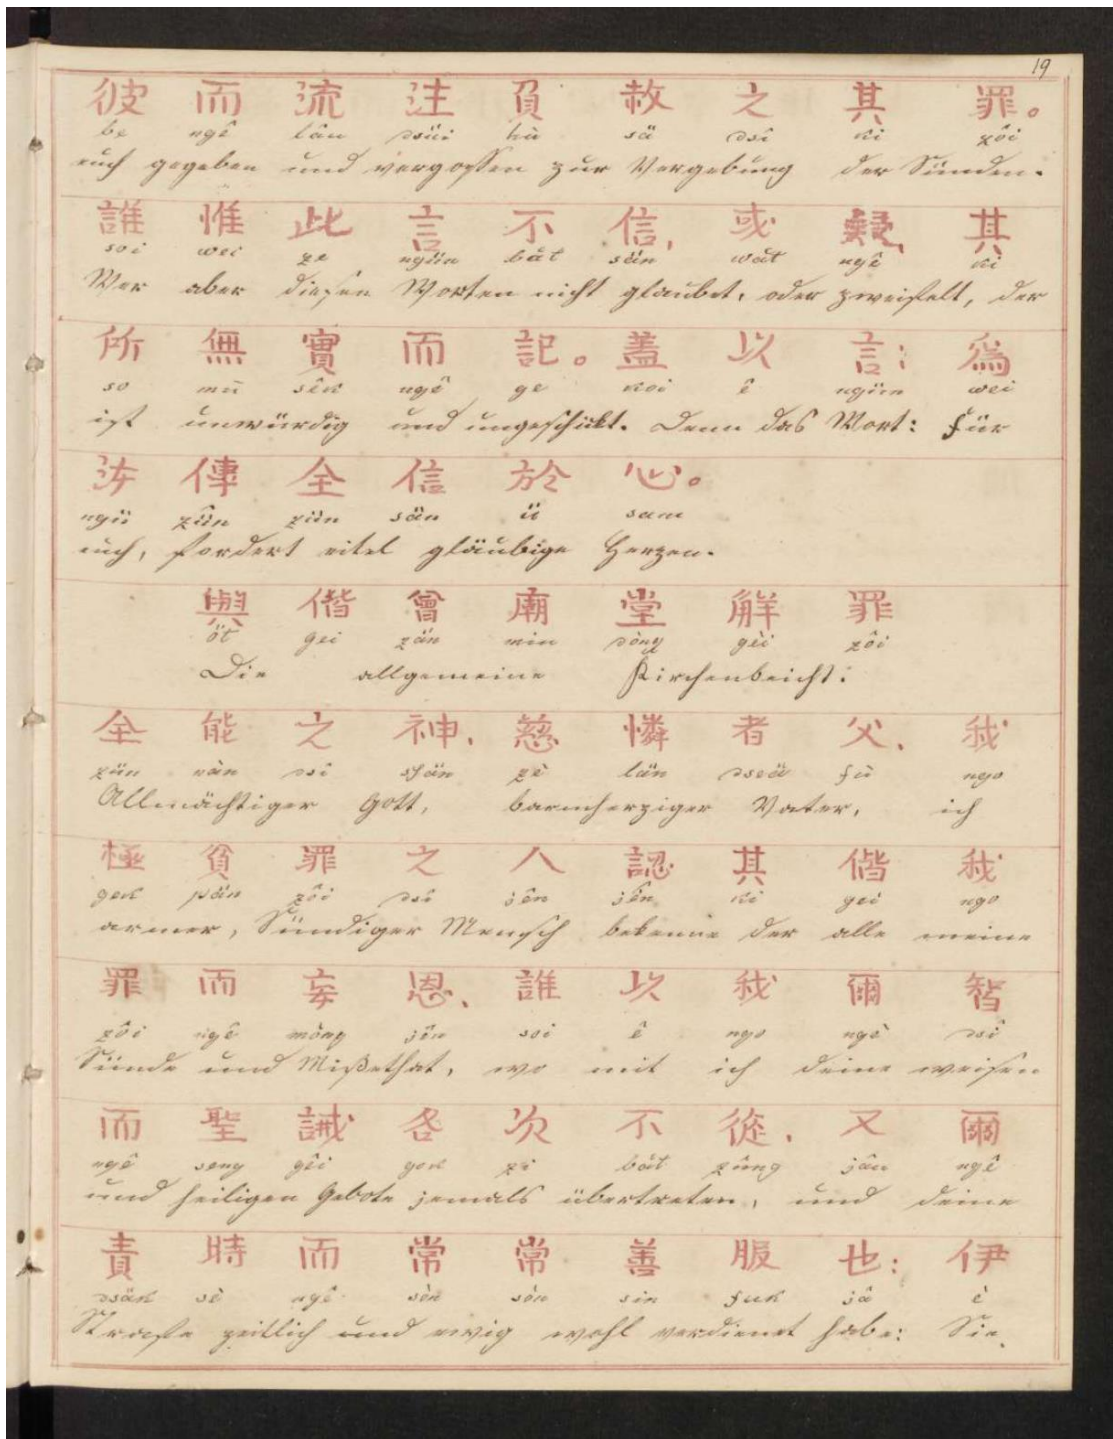 19
彼 而 流 注 負 赦 之 其 罪。
be ngê lâu dsüi hù sä dsî ki zôi
euch gegeben und vergossen zur Vergebung der Sünden.
誰 惟 此 言 不 信, 或 疑, 其
soi wei ze ngün bät sän wät ngê ki
Wer aber diesen Worten nicht glaubet, oder zweifelt, der
所 無 實 而 記。 盖 以 言: 爲
so mü sêk ngê ge koi ê ngün wei
ist unwürdig und ungeschikt. Denn das Wort: für
汝 傳 全 信 於 心。
ngü zün zün sän ü sam
euch, fordert eitel gläubige Herzen.
與 偕 曾 廟 堂 解 罪
öt gei zän miu dòng gèi zôi
Die allgemeine Kirchenbeicht:
全 能 之 神, 慈 憐 者 父, 我
zün nàn dsî sjän zè län dseä fù ngo
Allmächtiger Gott, barmherziger Vater, ich
極 貧 罪 之 人 認 其 偕 我
gek pän zôi dsî jên jên ki gei ngo
armer, Sündiger Mensch bekenne der alle meine
罪 而 妄 恩, 誰 以 我 爾 智
zôi ngê mòng jên soi ê ngo ngè dsî
Sünde und Mißethat, wo mit ich deine weisen
而 聖 誡 各 次 不 從, 又 爾
ngê seng gêi gok zi bät zûng jâu ngê
und heiligen Gebote jemals übertreten, und deine
責 時 而 常 常 善 服 也: 伊
dsäk sè ngê sòn sòn sin fuk jâ è
Strafe zeitlich und ewig wohl verdienet habe: Sie